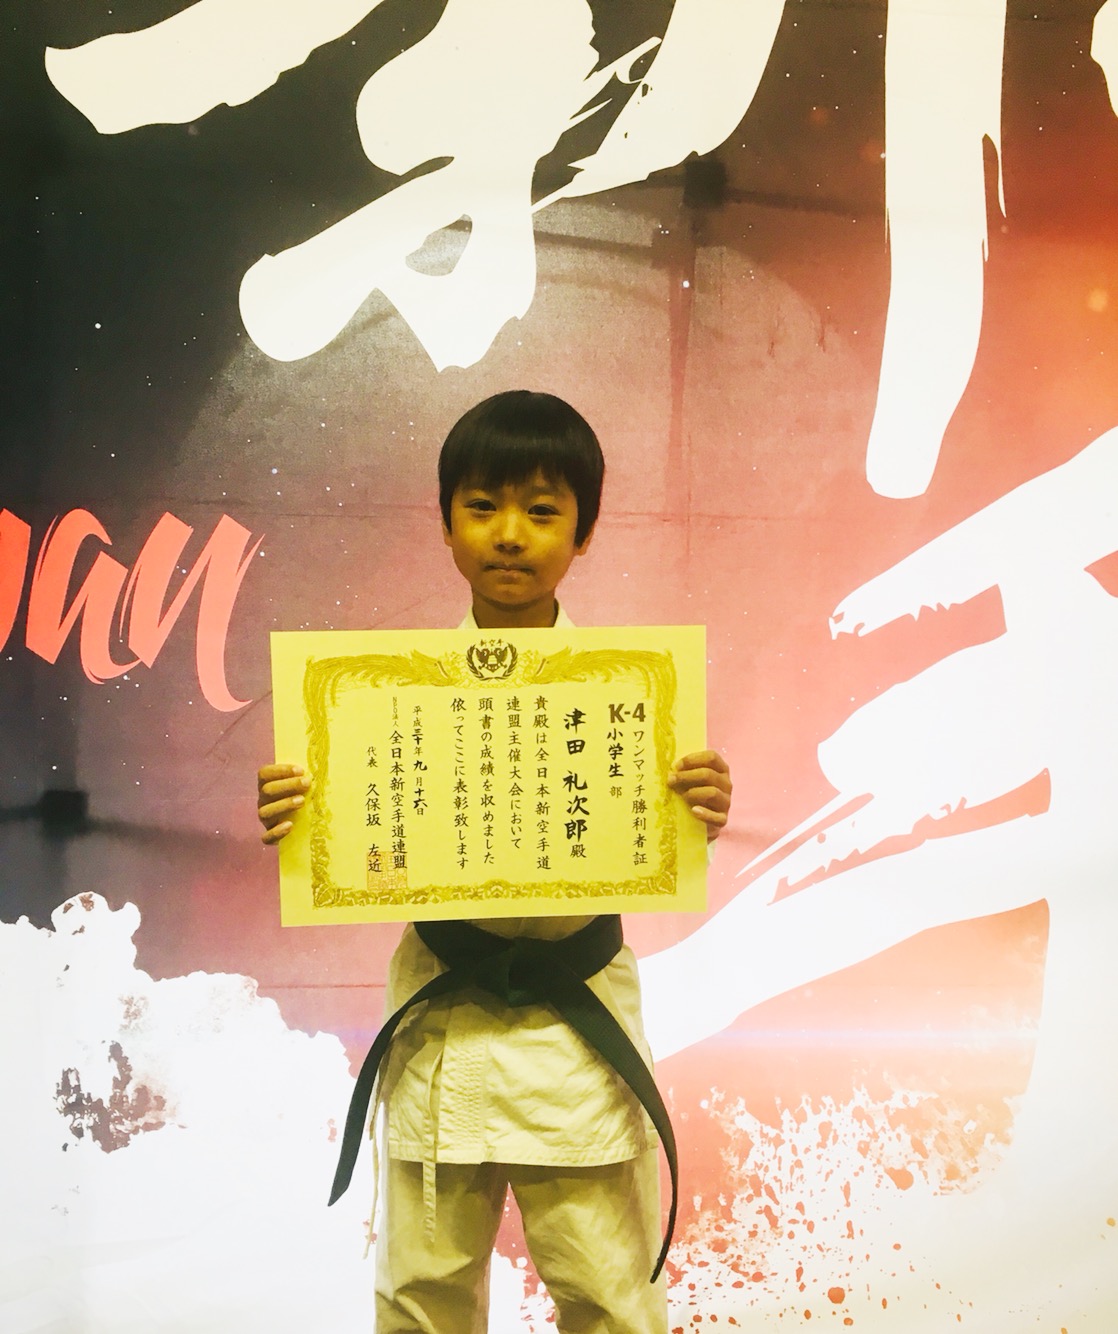 新空手
K-4 ワンマッチ勝利者証
小学生 部
津田 礼次郎 殿
貴殿は全日本新空手道
連盟主催大会において
頭書の成績を収めました
依ってここに表彰致します
平成三十年 九月十六日
NPO法人 全日本新空手道連盟
代表 久保坂 左近
pan